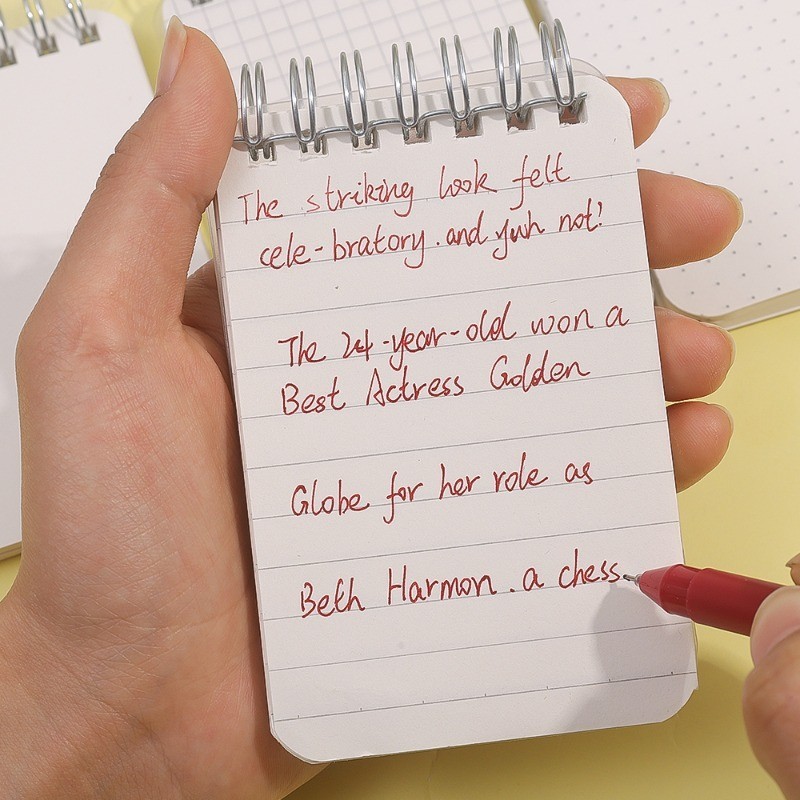 The striking look felt
cele-bratory. and yuh not?
The 24-year-old won a
Best Actress Golden
Globe for her role as
Beth Harmon. a chess